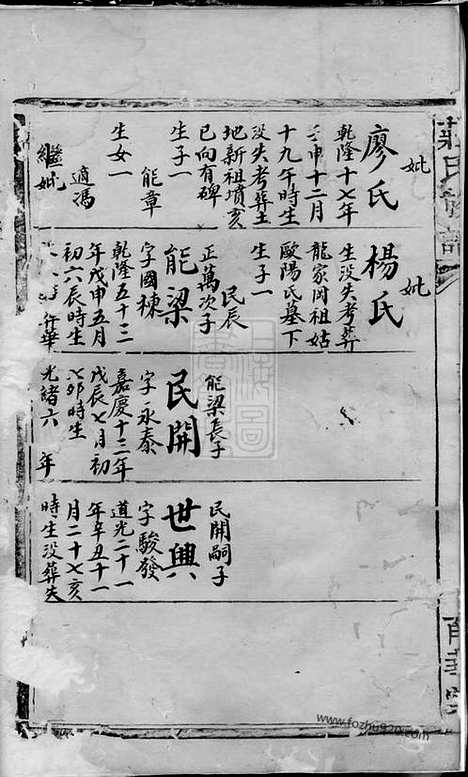 妣
廖氏
乾隆十七年
壬申十二月
十九年時生
没失考葬土
地新祖墳亥
已向有碑
生子一
能章
生女一
適馮
繼妣
妣
楊氏
生没失考葬
龍家岡祖姑
歐陽氏墓下
生子一
民辰
正萬次子
能梁
字國棟
乾隆五十三
年戊申五月
初六辰時生
能梁長子
民開
字永泰
嘉慶十三年
戊辰七月初
八卯時生
光緒六 年
民開嗣子
世興
字駿發
道光二十一
年辛丑十一
月二十七亥
時生没葬失
www.fozhu920.com